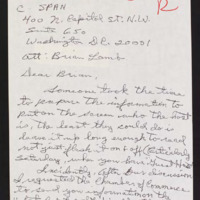 C SPAN
400 N. Capitol St. N.W.
Suite 650
Washington D.C. 20001
Att: Brian Lamb
Dear Brian,
Someone took the time
to prepare the information to
put on the screen who the host
is, the least they could do is
leave it up long enough to read
not just flick it on & off
Saturday when you
Incidently, after our discussion
I requested the Chamber of Commerce
to send you information